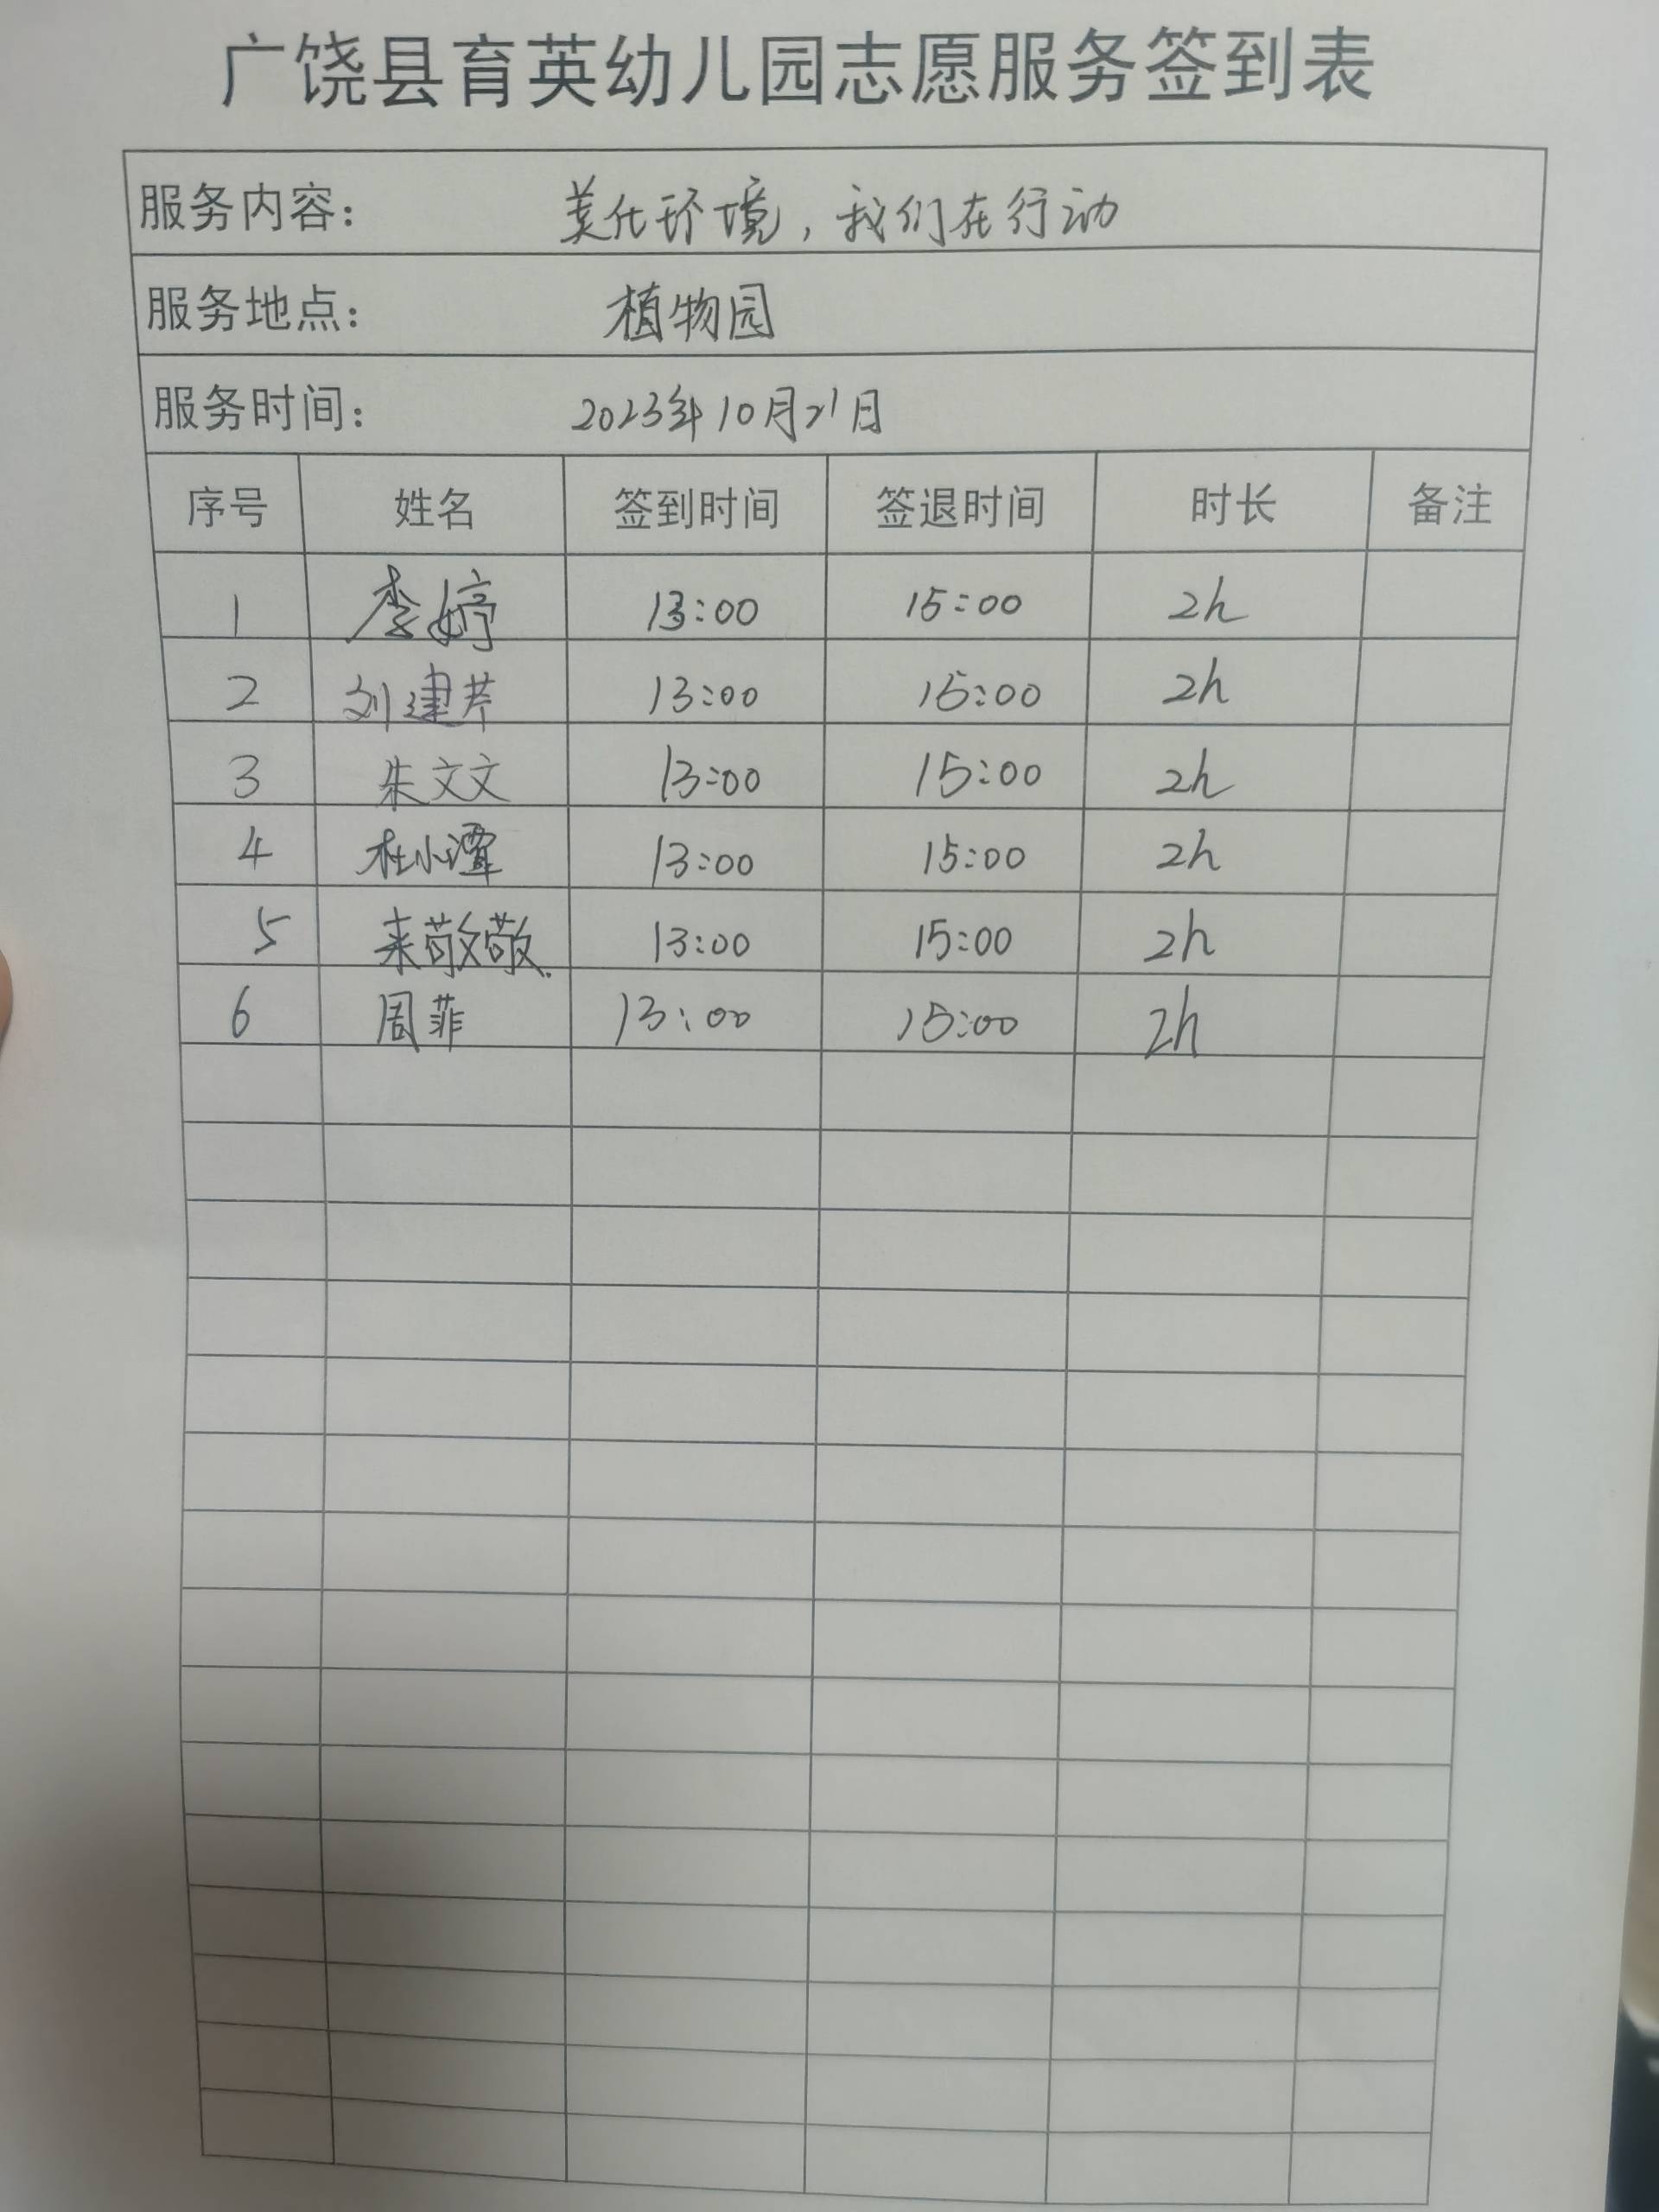 广饶县育英幼儿园志愿服务签到表
服务内容： 美化环境，我们在行动
服务地点： 植物园
服务时间： 2023年10月21日
序号 姓名 签到时间 签退时间 时长 备注
1 李婷 13:00 15:00 2h
2 刘建芹 13:00 15:00 2h
3 朱文文 13:00 15:00 2h
4 杜小潭 13:00 15:00 2h
5 来敬敬 13:00 15:00 2h
6 周菲 13:00 15:00 2h